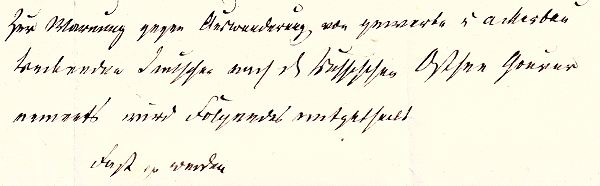 Zur Warnung gegen Auswanderung von gewerbe u ackerbau
treibenden Deutschen nach d Russischen Ostsee Gouver
nements wird Folgendes mitgetheilt
Fast werden